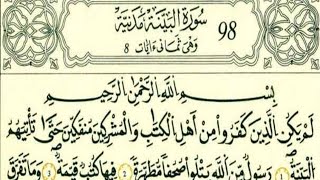 سُورَةُ الْبَيِّنَةِ مَدَنِيَّةٌ
وَهِيَ ثَمَانِي آيَاتٍ 8
98
بِسْمِ اللَّهِ الرَّحْمَٰنِ الرَّحِيمِ
لَمْ يَكُنِ الَّذِينَ كَفَرُوا مِنْ أَهْلِ الْكِتَٰبِ وَالْمُشْرِكِينَ مُنفَكِّينَ حَتَّىٰ تَأْتِيَهُمُ
الْبَيِّنَةُ 1 رَسُولٌ مِّنَ اللَّهِ يَتْلُوا صُحُفًا مُّطَهَّرَةً 2 فِيهَا كُتُبٌ قَيِّمَةٌ 3 وَمَا تَفَرَّقَ